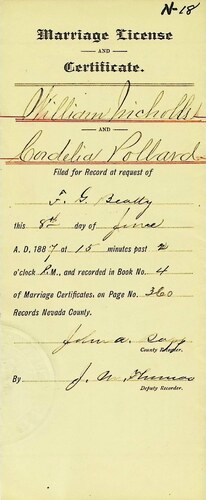 N-18
Marriage License
AND
Certificate.
William Nicholls
AND
Cordelia Pollard
Filed for Record at request of
F. G. Beatty
this 8th day of June
A. D. 1887 at 15 minutes past 2
o'clock P.M., and recorded in Book No. 4
of Marriage Certificates, on Page No. 360
Records Nevada County.
John A. Rapp
County Recorder.
By J. N.
Deputy Recorder.